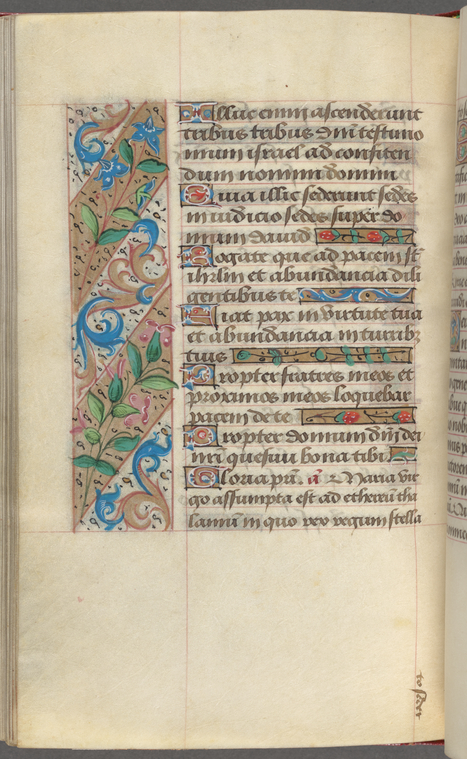 Illuc enim ascenderunt
tribus tribus dñi testimo
nium israel ad confiten
dum nomini domini
Quia illic sederunt sedes
in iudicio sedes super do
mum dauid
Rogate que ad pacem st̄
ihrlm et abundancia dili
gentibus te
Fiat pax in virtute tua
et abundancia in turrib
tuis
Propter fratres meos et
proximos meos loquebar
pacem de te
Propter domum dñi dei
nrī quesiui bona tibi
Gloria pri. a Maria vir
go assumpta est ad ethereū tha
lamū in quo rex regum stella